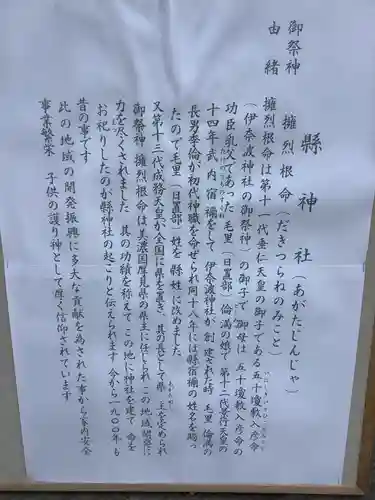 縣神社（あがたじんじゃ）
御祭神　擁烈根命（だきつらねのみこと）
由緒
擁烈根命は第十一代垂仁天皇の御子である五十瓊敷入彦命
（伊奈波神社の御祭神）の御子で 御母は 五十瓊敷入彦命の
功臣乳父であった毛里（日置部）倫満の娘で 第十二代景行天皇の
十四年 武内宿禰をして 伊奈波神社が創建された時 毛里倫満の
長男季倫が初代神職を命ぜられ同十八年には縣宿禰の姓名を賜っ
たので毛里（日置部）姓を 縣姓に改めました
又第十三代成務天皇が全国に県を置き、其の長として県主を定められ
御祭神 擁烈根命は美濃国厚見県の県主に任じられこの地域開発に
力を尽くされました 其の功績を称えてこの地に神社を建て 命を
お祀りしたのが縣神社の起こりと伝えられます 今から一九〇〇年も
昔の事です
此の地域の開発振興に多大な貢献を為された事から家内安全
事業繁栄　子供の護り神として厚く信仰されています